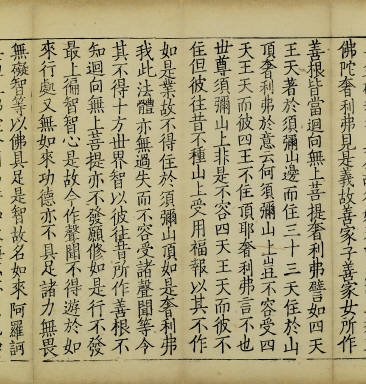 佛陀奢利弗見是義故善家子善家女所作
善根皆當迴向無上菩提奢利弗譬如四天
王天著於須彌山邊而住三十三天住於山
頂奢利弗於意云何須彌山上豈不容受四
天王天而彼四王不住頂耶奢利弗言不也
世尊須彌山上非是不容四天王天而彼不
住但彼往昔不種山上受用福報以其不作
如是業故不得住於須彌山頂如是奢利弗
我此法體亦無過失而不容受諸聲聞等令
其不得十方世界智以彼往昔所作善根不
知迴向無上菩提亦不發願修如是行不發
最上徧智智心是故今作聲聞不得遊於如
來行處又無如來功德亦不具足諸力無畏
無礙智等以佛具足是智故名如來阿羅訶